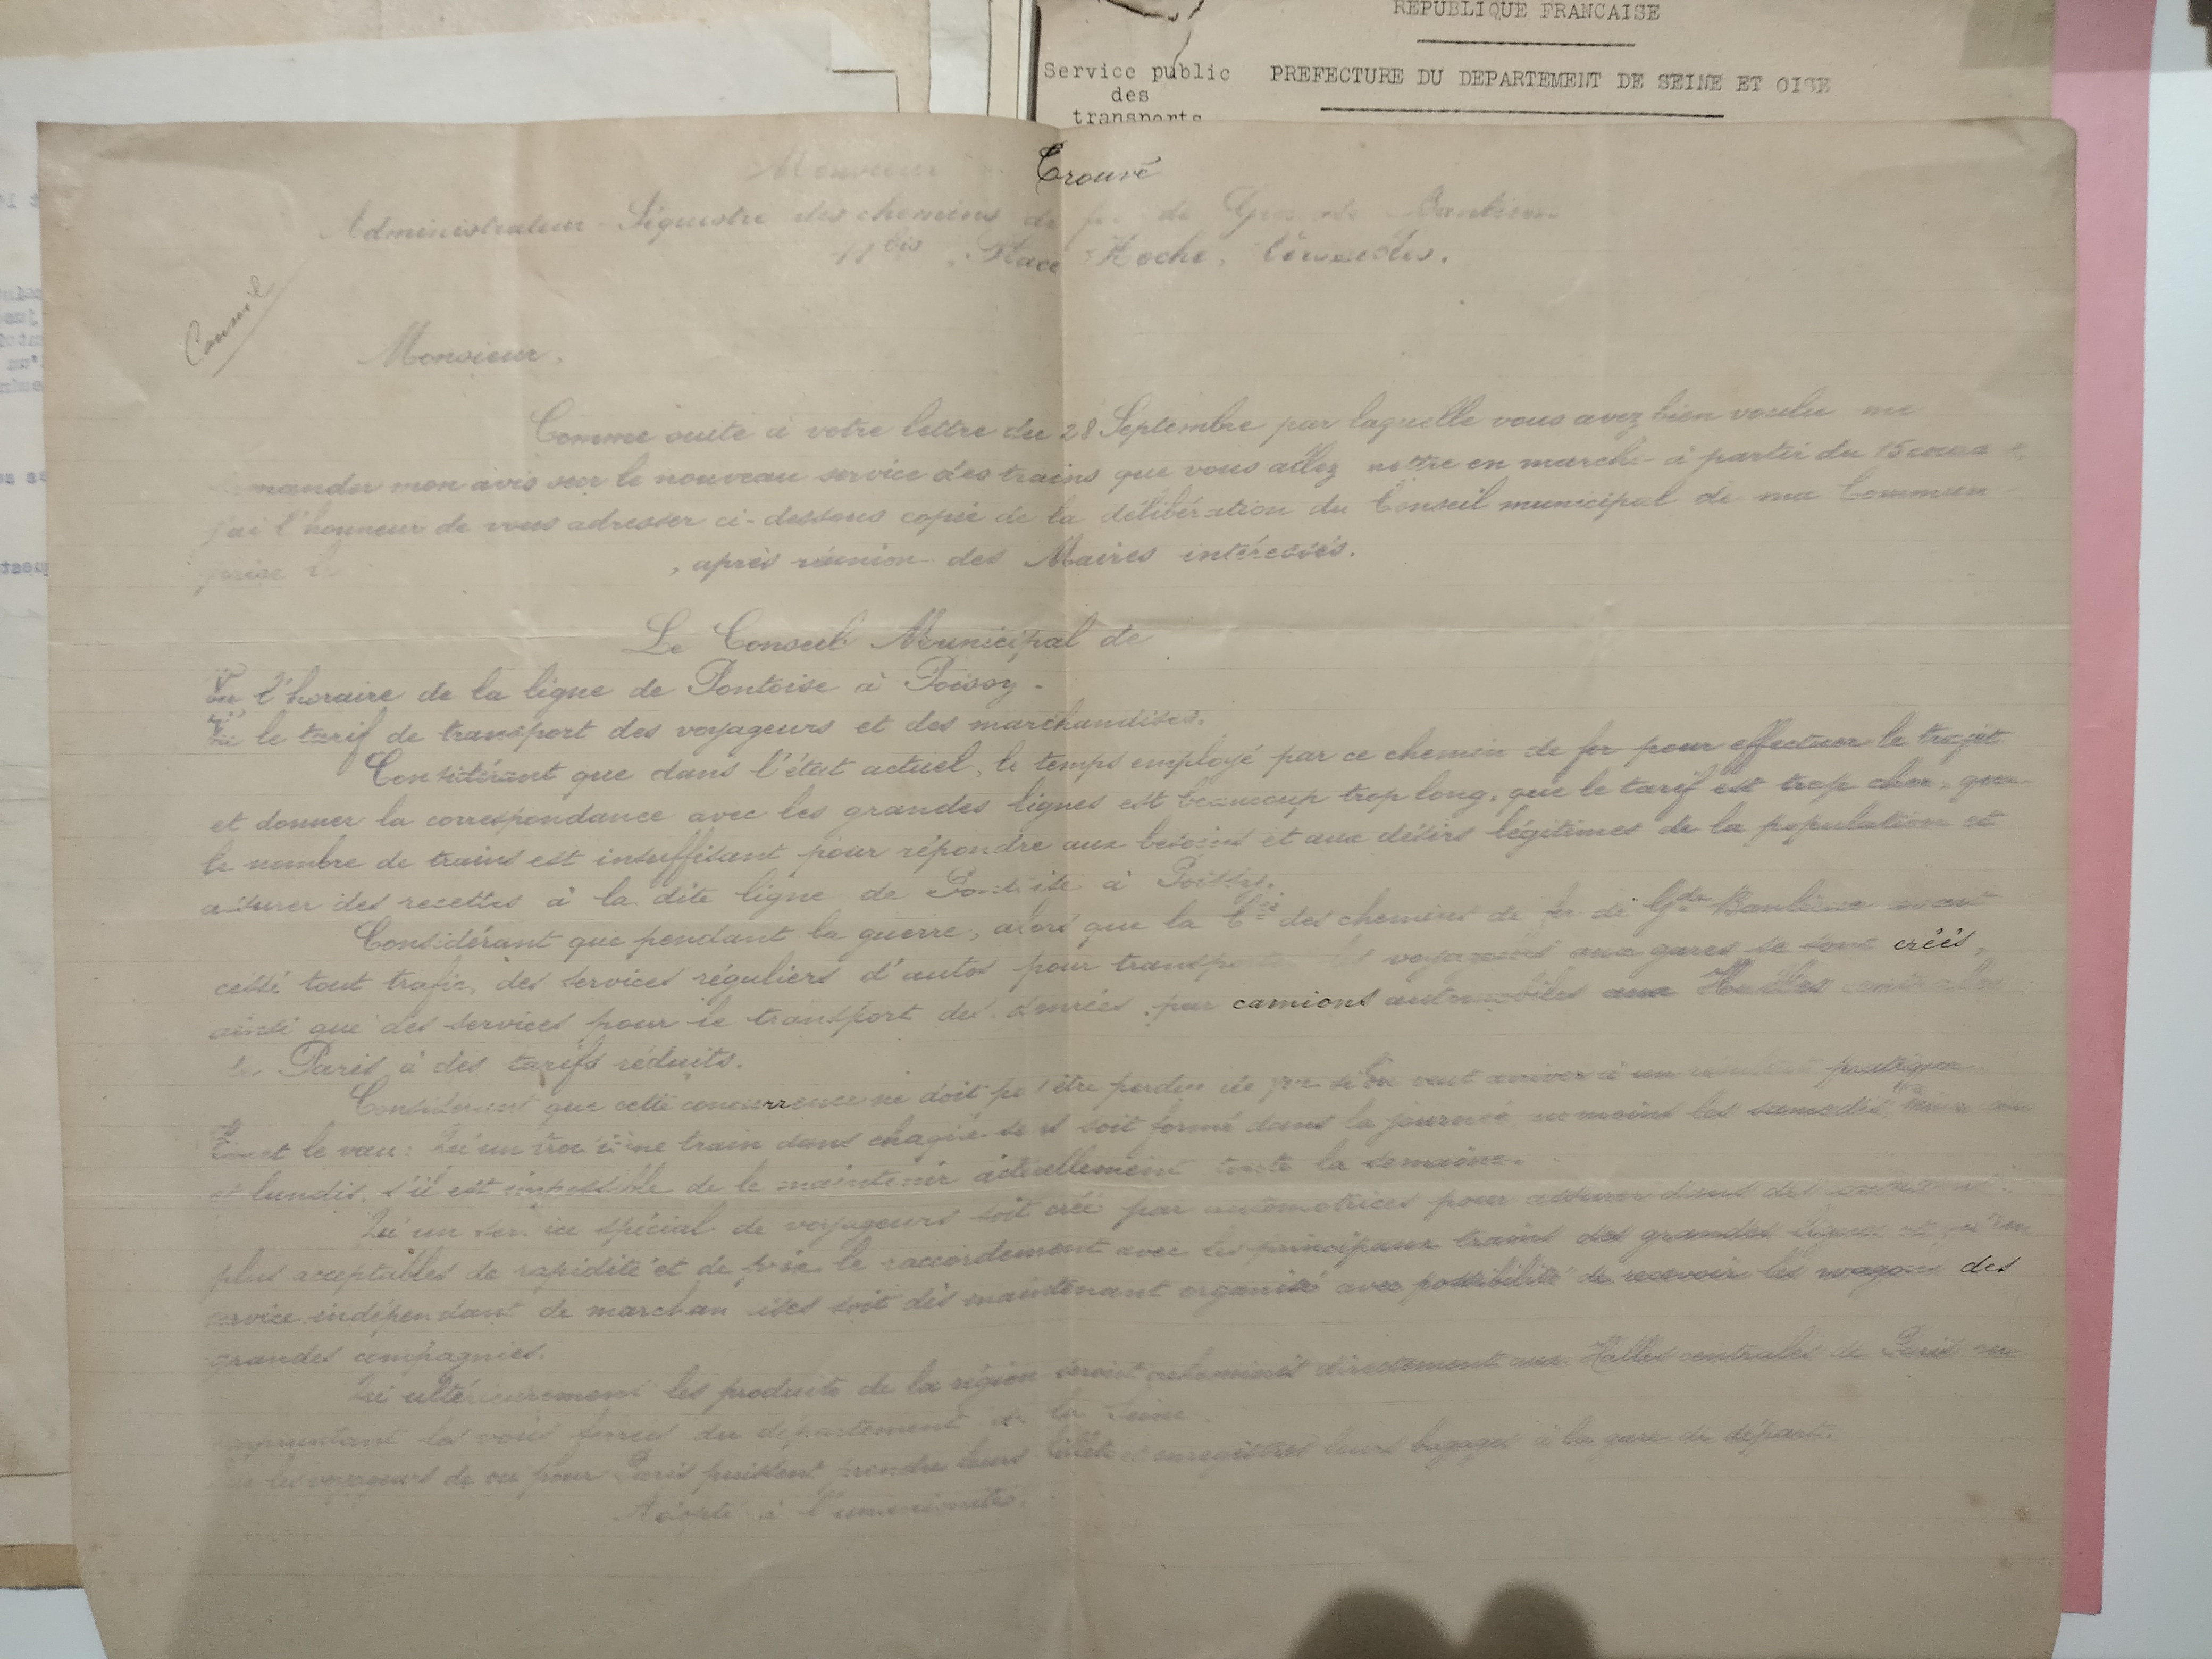 REPUBLIQUE FRANCAISE
Service public PREFECTURE DU DEPARTEMENT DE SEINE ET OISE
des
transports
Monsieur Trouvé
Administrateur-Séquestre des chemins de fer de Grande Banlieue
11 bis, Place Hoche, Versailles.
Conseil
Monsieur,
Comme suite à votre lettre du 28 Septembre par laquelle vous avez bien voulu me
demander mon avis sur le nouveau service des trains que vous allez mettre en marche à partir du 15
j'ai l'honneur de vous adresser ci-dessous copie de la délibération du Conseil municipal de ma Commune
prise , après réunion des Maires intéressés.
Le Conseil Municipal de
Vu l'horaire de la ligne de Pontoise à Poissy.
Vu le tarif de transport des voyageurs et des marchandises.
Considérant que dans l'état actuel, le temps employé par ce chemin de fer pour effectuer le trajet
et donner la correspondance avec les grandes lignes est beaucoup trop long, que le tarif est trop cher, que
le nombre de trains est insuffisant pour répondre aux besoins et aux désirs légitimes de la population et
assurer des recettes à la dite ligne de Pontoise à Poissy.
Considérant que pendant la guerre, alors que la Cie des chemins de fer de Gde Banlieue avait
cessé tout trafic, des services réguliers d'autos pour transporter les voyageurs aux gares se sont créés,
ainsi que des services pour le transport des denrées par camions automobiles aux Halles centrales
de Paris à des tarifs réduits.
Considérant que cette concurrence ne doit pas être perdue de vue si l'on veut arriver à un résultat pratique.
Emet le vœu: Qu'un troisième train dans chaque sens soit formé dans la journée au moins les samedis,
et lundis, s'il est impossible de le maintenir actuellement toute la semaine.
Qu'un service spécial de voyageurs soit créé par automotrices pour assurer dans des conditions
plus acceptables de rapidité et de prix le raccordement avec les principaux trains des grandes lignes et qu'un
service indépendant de marchandises soit dès maintenant organisé avec possibilité de recevoir les wagons des
grandes compagnies.
Qu'ultérieurement les produits de la région soient acheminés directement aux Halles centrales de Paris en
empruntant les voies ferrées du département de la Seine.
Que les voyageurs de ou pour Paris puissent prendre leurs billets et enregistrer leurs bagages à la gare de départ.
Adopté à l'unanimité.